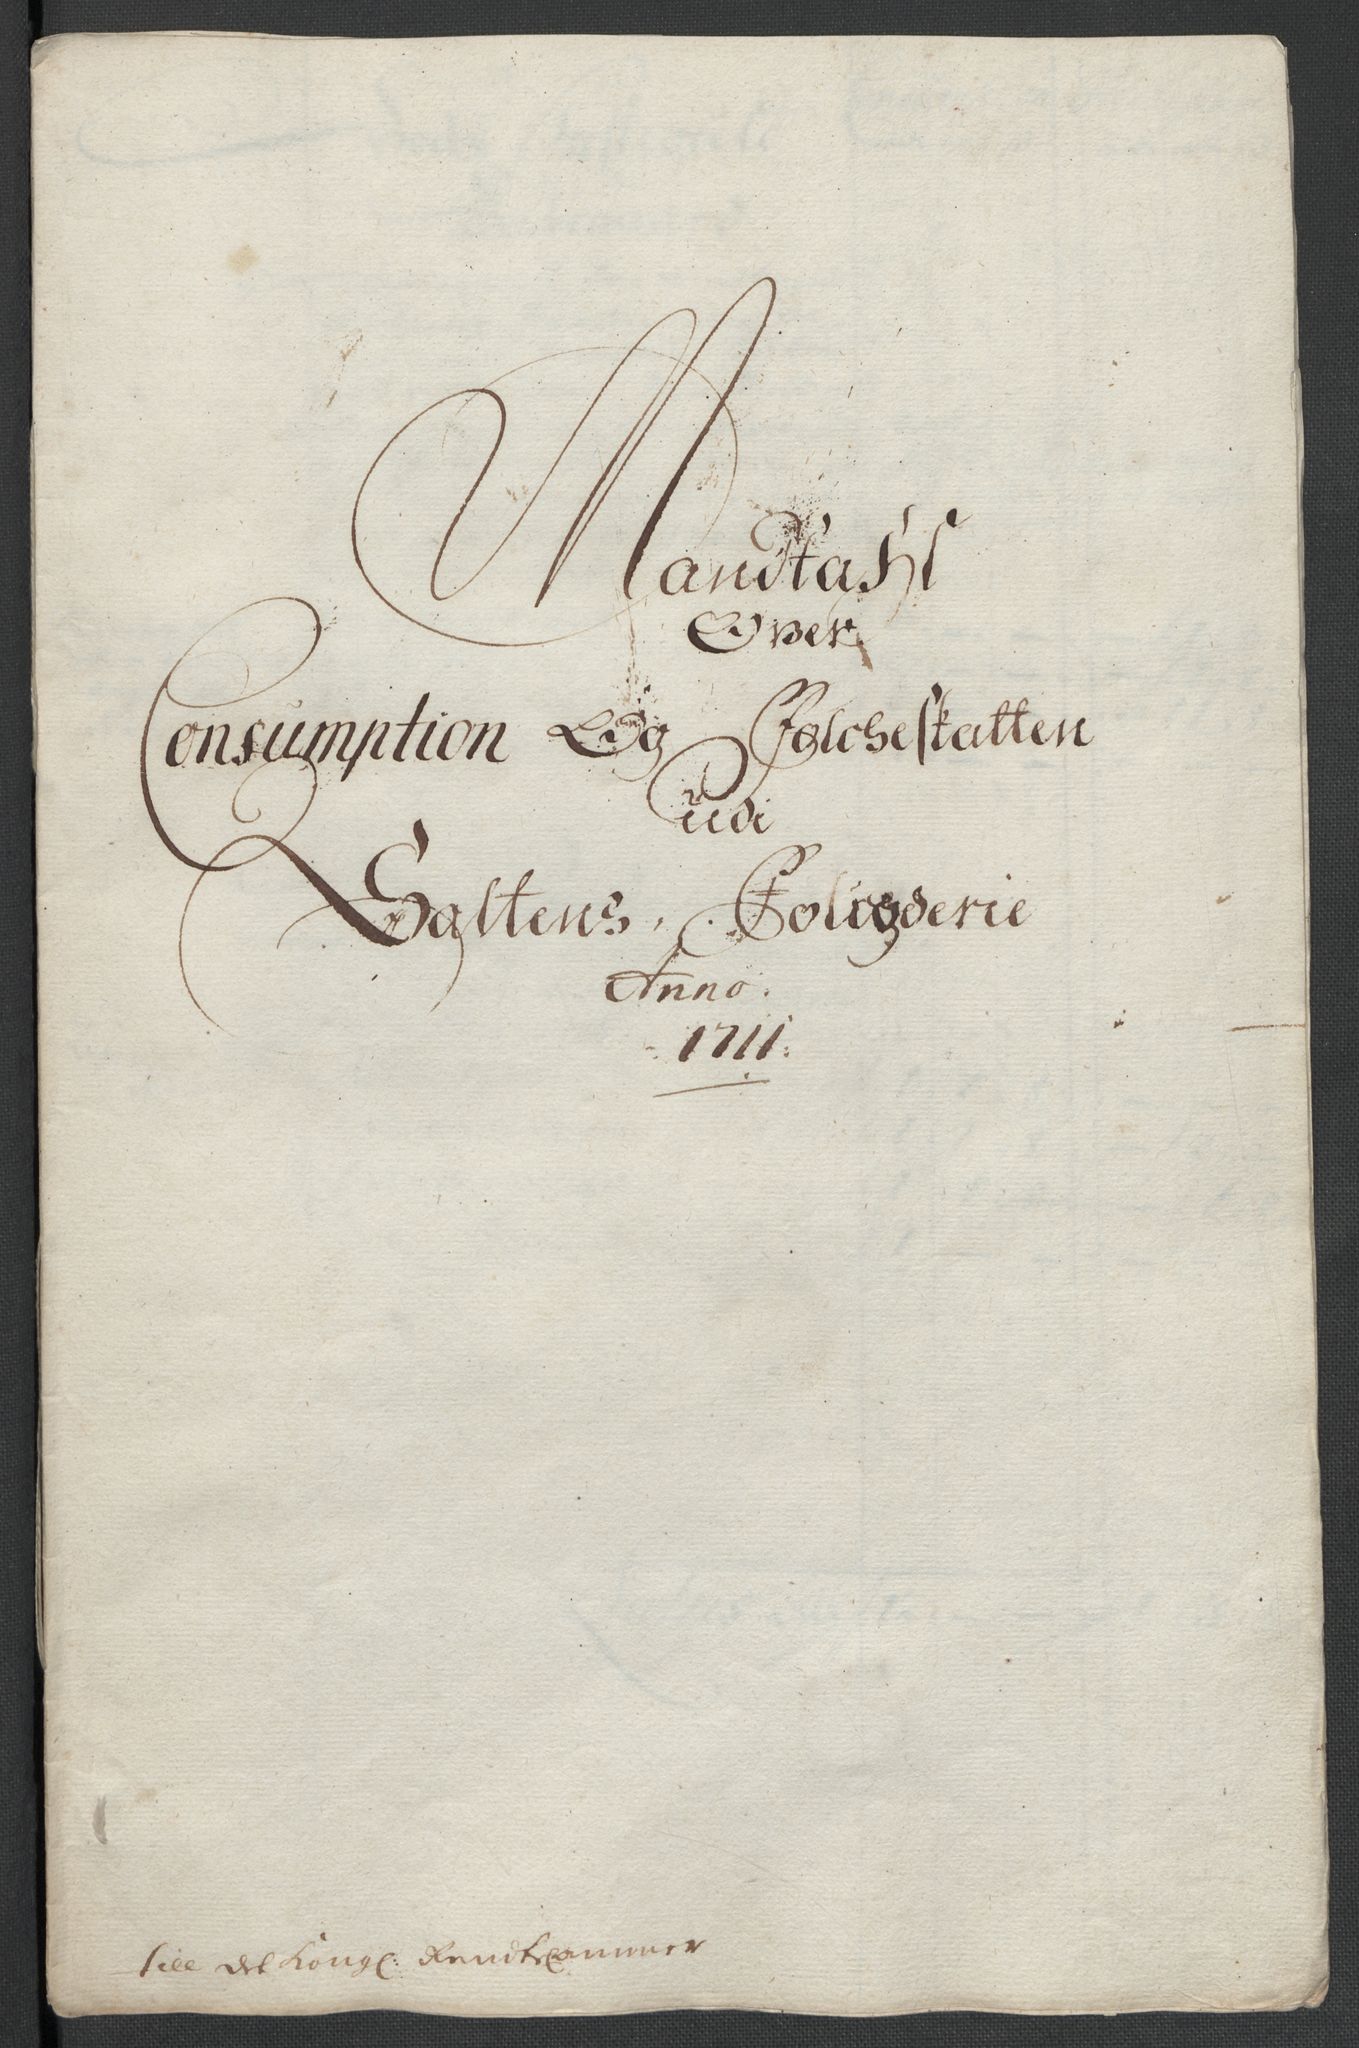 Mandtahl
Over
Consumption Og Folcheskatten
udi
Saltens Fougderie
Anno
1711
Till det Kongl: Rendtkammer